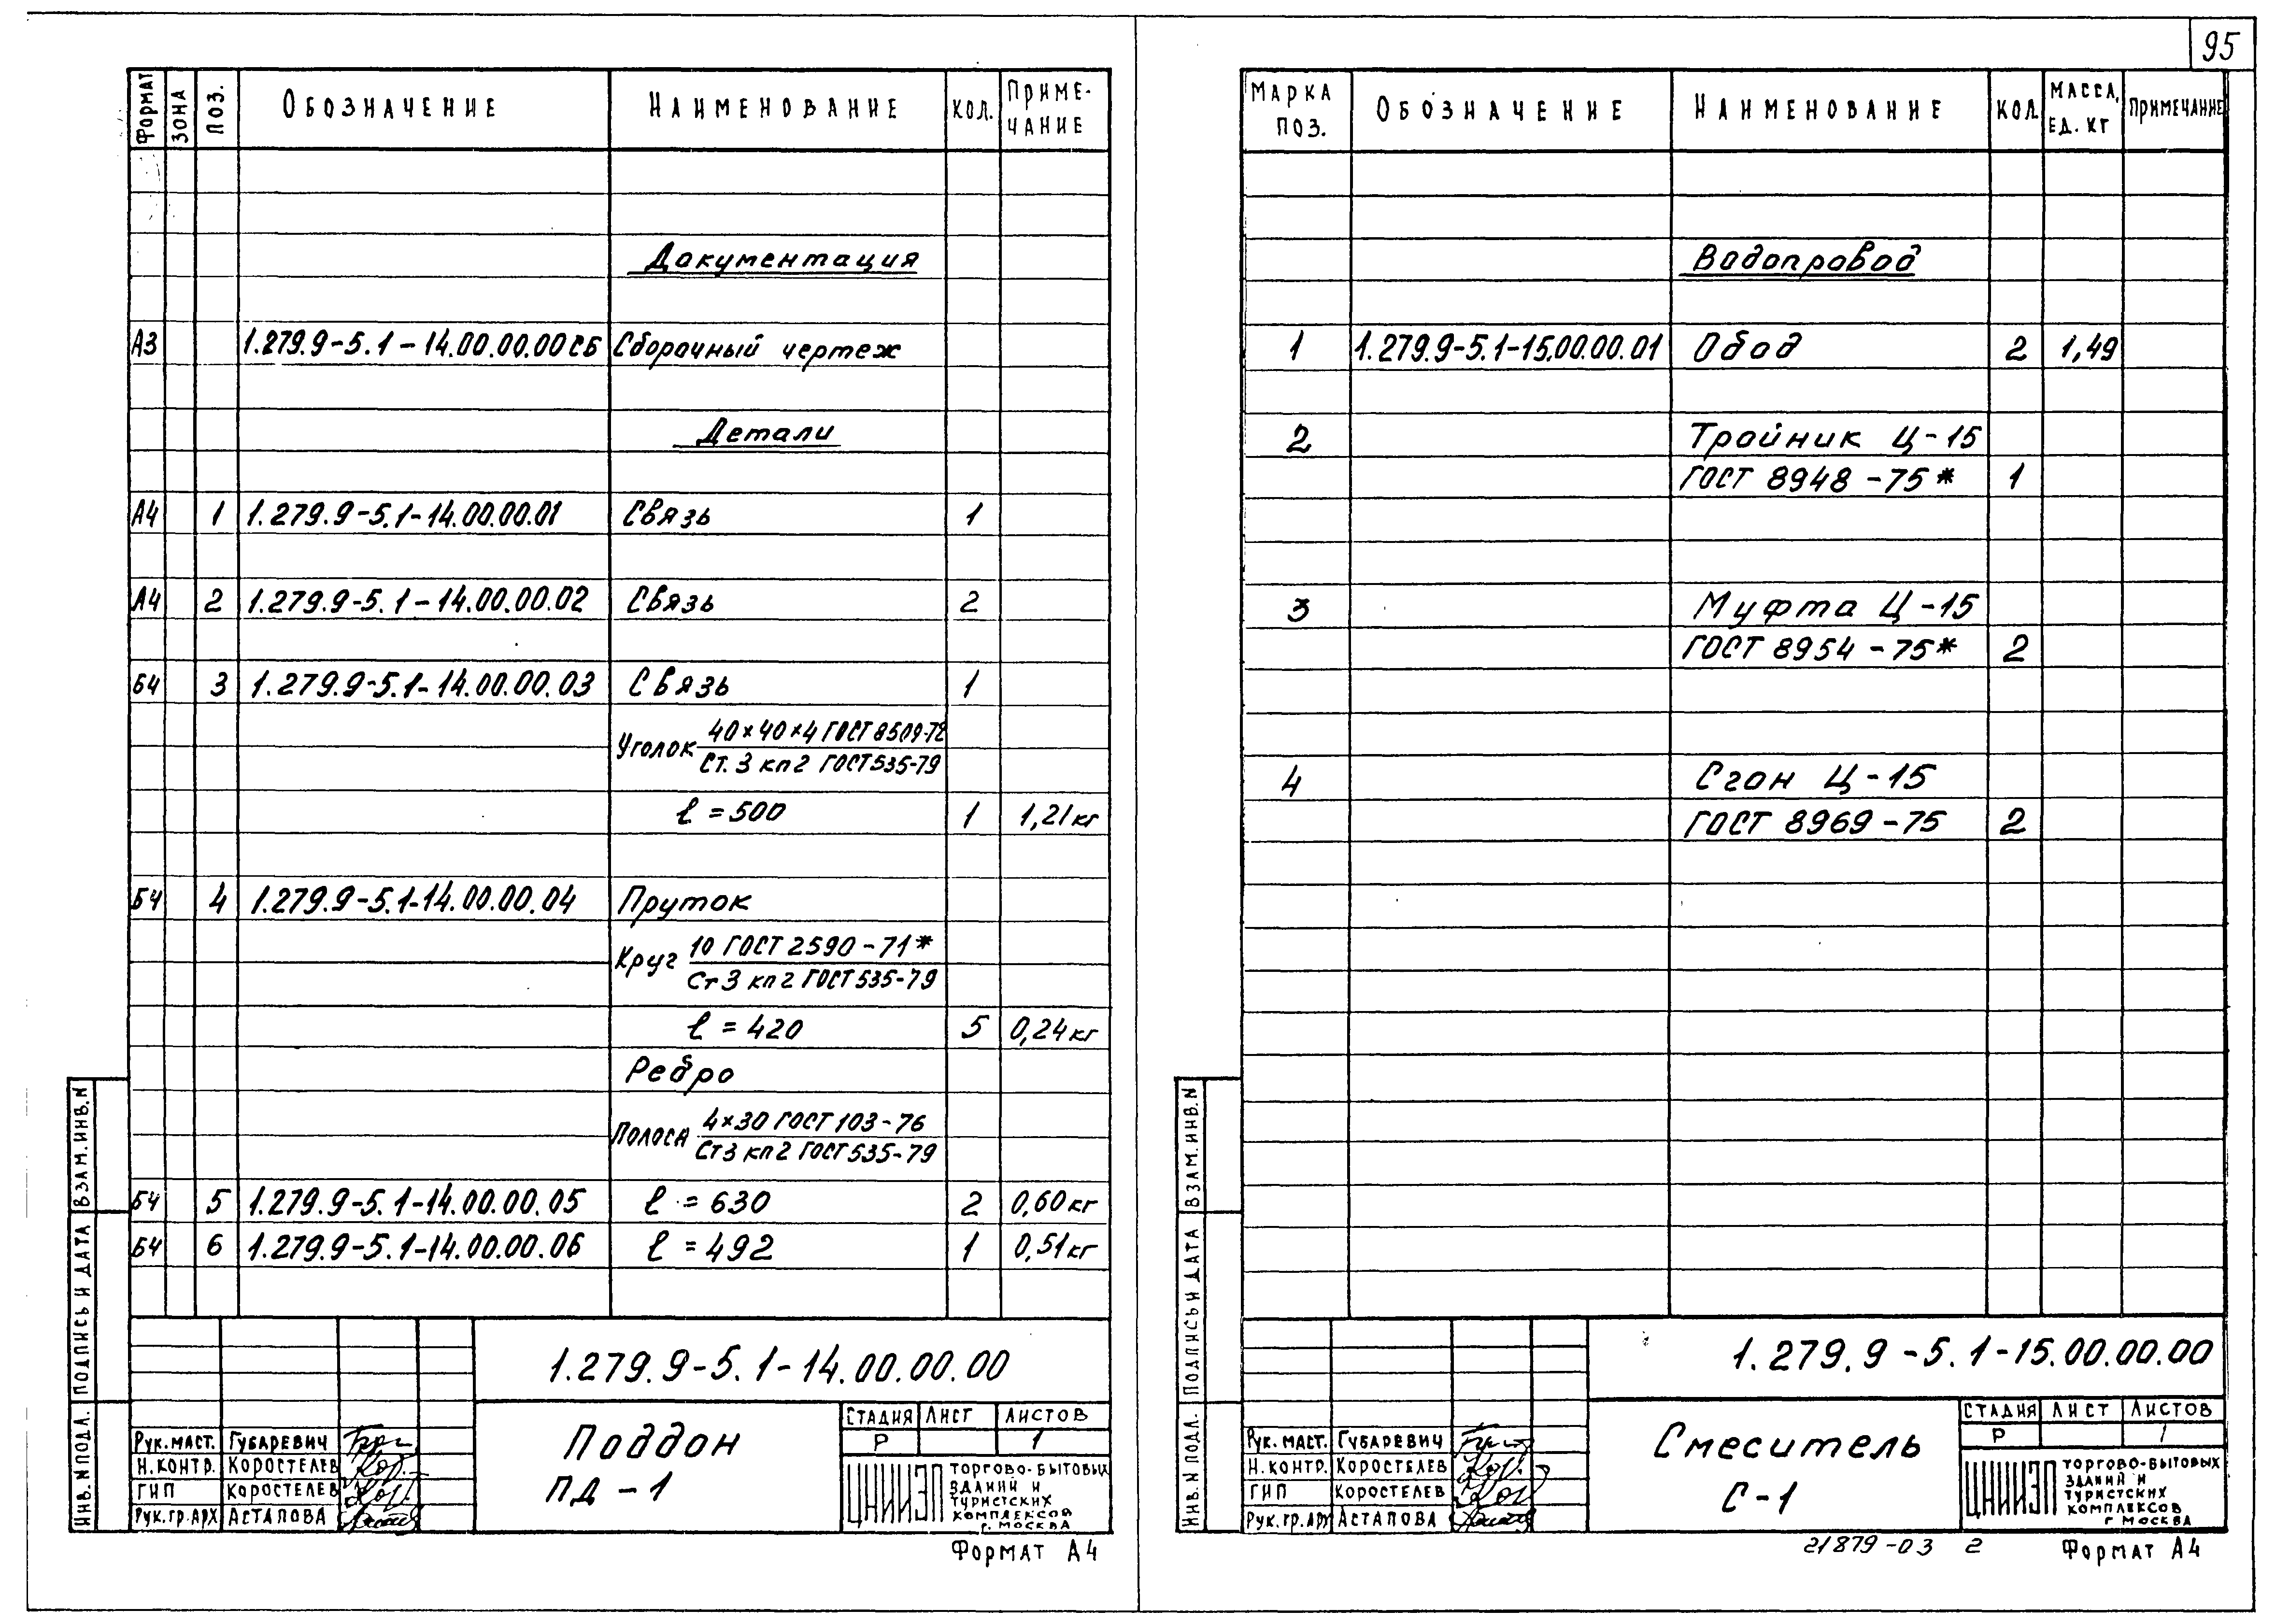 95
ФОРМАТ ЗОНА ПОЗ. ОБОЗНАЧЕНИЕ НАИМЕНОВАНИЕ КОЛ. ПРИМЕ-
ЧАНИЕ
Документация
А3 1.279.9-5.1-14.00.00.00СБ Сборочный чертеж
Детали
А4 1 1.279.9-5.1-14.00.00.01 Связь 1
А4 2 1.279.9-5.1-14.00.00.02 Связь 2
Б4 3 1.279.9-5.1-14.00.00.03 Связь 1
Уголок 40×40×4 ГОСТ 8509-72
Ст.3 кп2 ГОСТ 535-79
ℓ=500 1 1,21кг
Б4 4 1.279.9-5.1-14.00.00.04 Пруток
Круг 10 ГОСТ 2590-71*
Ст3 кп2 ГОСТ 535-79
ℓ=420 5 0,24кг
Ребро
Полоса 4×30 ГОСТ 103-76
Ст3 кп2 ГОСТ 535-79
Б4 5 1.279.9-5.1-14.00.00.05 ℓ=630 2 0,60кг
Б4 6 1.279.9-5.1-14.00.00.06 ℓ=492 1 0,51кг
ВЗАМ.ИНВ.N
ПОДПИСЬ И ДАТА
ИНВ.N ПОДЛ.
1.279.9-5.1-14.00.00.00
РУК.МАСТ. ГУБАРЕВИЧ
Н.КОНТР. КОРОСТЕЛЕВ
ГИП КОРОСТЕЛЕВ
РУК.ГР.АРХ АСТАПОВА
Поддон
ПД-1
СТАДИЯ ЛИСТ ЛИСТОВ
Р 1
ЦНИИЭП ТОРГОВО-БЫТОВЫХ
ЗДАНИЙ И
ТУРИСТСКИХ
КОМПЛЕКСОВ
г. МОСКВА
ФОРМАТ А4
МАРКА
ПОЗ. ОБОЗНАЧЕНИЕ НАИМЕНОВАНИЕ КОЛ. МАССА,
ЕД. КГ ПРИМЕЧАНИЕ
Водопровод
1 1.279.9-5.1-15.00.00.01 Обод 2 1,49
2 Тройник Ц-15
ГОСТ 8948-75* 1
3 Муфта Ц-15
ГОСТ 8954-75* 2
4 Сгон Ц-15
ГОСТ 8969-75 2
ВЗАМ.ИНВ.N
ПОДПИСЬ И ДАТА
ИНВ.N ПОДЛ.
1.279.9-5.1-15.00.00.00
РУК.МАСТ. ГУБАРЕВИЧ
Н.КОНТР. КОРОСТЕЛЕВ
ГИП КОРОСТЕЛЕВ
РУК.ГР.АРХ АСТАПОВА
Смеситель
С-1
СТАДИЯ ЛИСТ ЛИСТОВ
Р 1
ЦНИИЭП ТОРГОВО-БЫТОВЫХ
ЗДАНИЙ И
ТУРИСТСКИХ
КОМПЛЕКСОВ
г МОСКВА
21879-03 2 ФОРМАТ А4